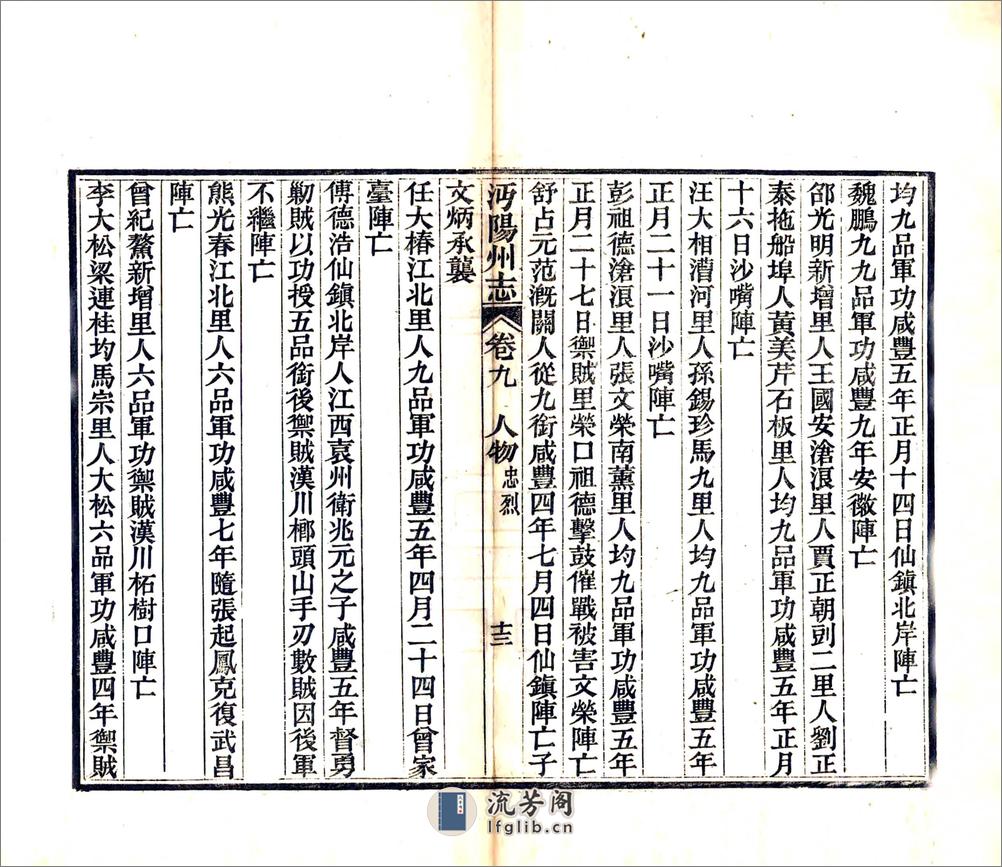 均九品軍功咸豐五年正月十四日仙鎮北岸陣亡
魏鵬九九品軍功咸豐九年安徽陣亡
邰光明新增里人王國安滄浪里人賈正朝剅二里人劉正
泰拖船埠人黃美芹石板里人均九品軍功咸豐五年正月
十六日沙嘴陣亡
汪大相漕河里人孫錫珍馬九里人均九品軍功咸豐五年
正月二十一日沙嘴陣亡
彭祖德滄浪里人張文榮南薰里人均九品軍功咸豐五年
正月二十七日禦賊里榮口祖德擊鼓催戰被害文榮陣亡
舒占元范溉關人從九銜咸豐四年七月四日仙鎮陣亡子
沔陽州志 卷九 人物 忠烈 十三
文炳承襲
任大椿江北里人九品軍功咸豐五年四月二十四日曾家
臺陣亡
傅德浩仙鎮北岸人江西袁州衛兆元之子咸豐五年督勇
勦賊以功授五品銜後禦賊漢川榔頭山手刃數賊因後軍
不繼陣亡
熊光春江北里人六品軍功咸豐七年隨張起鳳克復武昌
陣亡
曾紀鰲新增里人六品軍功禦賊漢川柘樹口陣亡
李大松梁連桂均馬宗里人大松六品軍功咸豐四年禦賊
流芳阁
lfglib.cn